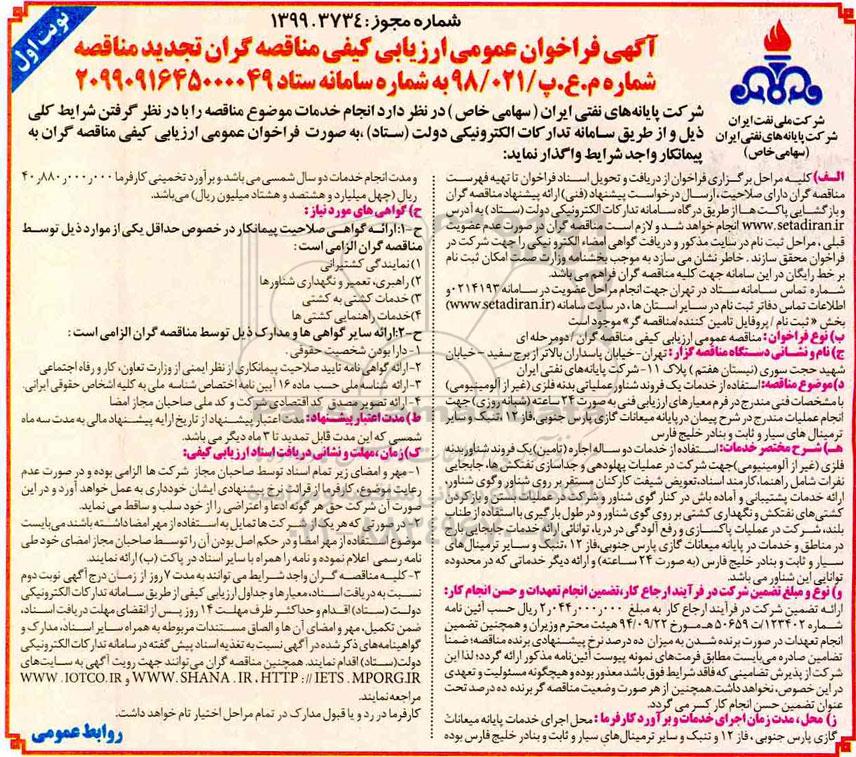 شماره مجوز: ۱۳۹۹.۳۷۳۴
نوبت اول
آگهی فراخوان عمومی ارزیابی کیفی مناقصه گران تجدید مناقصه
شماره م.ع.پ/۹۸/۰۲۱ به شماره سامانه ستاد ۲۰۹۹۰۹۱۶۴۵۰۰۰۰۴۹
شرکت ملی نفت ایران
شرکت پایانه‌های نفتی ایران
(سهامی خاص)
شرکت پایانه‌های نفتی ایران (سهامی خاص) در نظر دارد انجام خدمات موضوع مناقصه را با در نظر گرفتن شرایط کلی
ذیل و از طریق سامانه تدارکات الکترونیکی دولت (ستاد)، به صورت فراخوان عمومی ارزیابی کیفی مناقصه گران به
پیمانکار واجد شرایط واگذار نماید:
الف) کلیه مراحل برگزاری فراخوان از دریافت و تحویل اسناد فراخوان تا تهیه فهرست
مناقصه گران دارای صلاحیت، ارسال درخواست پیشنهاد (فنی) ارائه پیشنهاد مناقصه گران
و بازگشایی پاکت ها از طریق درگاه سامانه تدارکات الکترونیکی دولت (ستاد) به آدرس
www.setadiran.ir انجام خواهد شد و لازم است مناقصه گران در صورت عدم عضویت
قبلی، مراحل ثبت نام در سایت مذکور و دریافت گواهی امضاء الکترونیکی را جهت شرکت در
فراخوان محقق سازند. خاطر نشان می سازد به موجب بخشنامه وزارت نفت امکان ثبت نام
بر خط رایگان در این سامانه جهت کلیه مناقصه گران فراهم می باشد.
شماره تماس سامانه ستاد در تهران جهت انجام مراحل عضویت در سامانه ۰۲۱۴۱۹۳ و
اطلاعات تماس دفاتر ثبت نام در سایر استان ها، در سایت سامانه (www.setadiran.ir)
بخش «ثبت نام / پروفایل تامین کننده/مناقصه گر» موجود است
ب) نوع فراخوان: مناقصه عمومی ارزیابی کیفی مناقصه گران / دو مرحله ای
ج) نام و نشانی دستگاه مناقصه گزار: تهران-خیابان پاسداران بالاتر از برج سفید-خیابان
شهید حجت سوری (نیستان هفتم) پلاک ۱۱-شرکت پایانه‌های نفتی ایران
د) موضوع مناقصه: استفاده از خدمات یک فروند شناور عملیاتی بدنه فلزی (غیر از آلومینیومی)
با مشخصات فنی مندرج در فرم معیارهای ارزیابی فنی به صورت ۲۴ ساعته (شبانه روزی) جهت
انجام عملیات مندرج در شرح پیمان در پایانه میعانات گازی پارس جنوبی، فاز ۱۲، تنبک و سایر
ترمینال های سیار و ثابت و بنادر خلیج فارس
هـ) شرح مختصر خدمات: استفاده از خدمات دو ساله اجاره (تامین) یک فروند شناور بدنه
فلزی (غیر از آلومینیومی) جهت شرکت در عملیات پهلودهی و جداسازی نفتکش ها، جابجایی
نفرات شامل راهنما، کارمند اسناد، تعویض شیفت کارکنان مستقر بر روی شناور و گوی شناور،
ارائه خدمات پشتیبانی و آماده باش در کنار گوی شناور و شرکت در عملیات بستن و باز کردن
کشتی های نفتکش و نگهداری کشتی بر روی گوی شناور و در طول بارگیری با استفاده از طناب
بلند، شرکت در عملیات پاکسازی و رفع آلودگی در دریا، توانائی ارائه خدمات جابجایی بار
در مناطق و خدمات در پایانه میعانات گازی پارس جنوبی، فاز ۱۲، تنبک و سایر ترمینال های
سیار و ثابت و بنادر خلیج فارس (به صورت ۲۴ ساعته) و ارائه دیگر خدماتی که در محدوده
توانایی این شناور می باشد.
و) نوع و مبلغ تضمین شرکت در فرآیند ارجاع کار، تضمین انجام تعهدات و حسن انجام کار:
ارائه تضمین شرکت در فرآیند ارجاع کار به مبلغ ۲٫۰۴۴٫۰۰۰٫۰۰۰ ریال حسب آئین نامه
شماره ۱۲۳۴۰۲/ت ۵۰۶۵۹ هـ مورخ ۹۴/۰۹/۲۲ هیئت محترم وزیران و همچنین تضمین
انجام تعهدات در صورت برنده شدن به میزان ده درصد نرخ پیشنهادی برنده مناقصه؛ ضمنا
تضامین صادره می‌بایست مطابق فرمت‌های نمونه پیوست آئین‌نامه مذکور ارائه گردد؛ لذا این
شرکت از پذیرش تضامینی که فاقد شرایط فوق باشد معذور بوده و هیچگونه مسئولیت و تعهدی
در این خصوص، نخواهد داشت. همچنین از هر صورت وضعیت مناقصه گر برنده ده درصد تحت
عنوان تضمین حسن انجام کار کسر می گردد.
ز) محل، مدت زمان اجرای خدمات و برآورد کارفرما: محل اجرای خدمات پایانه میعانات
گازی پارس جنوبی، فاز ۱۲ و تنبک و سایر ترمینال‌های سیار و ثابت و بنادر خلیج فارس بوده
و مدت انجام خدمات دو سال شمسی می باشد و برآورد تخمینی کارفرما ۴۰٫۸۸۰٫۰۰۰٫۰۰۰
ریال (چهل میلیارد و هشتصد و هشتاد میلیون ریال) می‌باشد.
ح) گواهی های مورد نیاز:
ح-۱: ارائه گواهی صلاحیت پیمانکار در خصوص حداقل یکی از موارد ذیل توسط
مناقصه گران الزامی است:
۱) نمایندگی کشتیرانی
۲) راهبری، تعمیر و نگهداری شناورها
۳) خدمات کشتی به کشتی
۴) خدمات راهنمایی کشتی ها
ح-۲: ارائه سایر گواهی ها و مدارک ذیل توسط مناقصه گران الزامی است:
۱- دارا بودن شخصیت حقوقی.
۲- ارائه گواهی نامه تایید صلاحیت پیمانکاری از نظر ایمنی از وزارت تعاون، کار و رفاه اجتماعی
۳- ارائه شناسه ملی حسب ماده ۱۶ آیین نامه اختصاص شناسه ملی به کلیه اشخاص حقوقی ایرانی.
۴- ارائه تصویر مصدق کد اقتصادی شرکت و کد ملی صاحبان مجاز امضا
ط) مدت اعتبار پیشنهاد: مدت اعتبار پیشنهاد از تاریخ ارایه پیشنهاد مالی به مدت سه ماه
شمسی که این مدت قابل تمدید تا ۳ ماه دیگر می باشد.
ک) زمان، مهلت و نشانی دریافت اسناد ارزیابی کیفی:
۱- مهر و امضای زیر تمام اسناد توسط صاحبان مجاز شرکت ها الزامی بوده و در صورت عدم
رعایت موضوع، کارفرما از قرائت نرخ پیشنهادی ایشان خودداری به عمل خواهد آورد و در این
صورت آن شرکت حق هر گونه ادعا و اعتراضی را از خود سلب و ساقط می نماید.
۲- در صورتی که هر یک از شرکت ها تمایل به استفاده از مهر امضا داشته باشند می‌بایست
موضوع استفاده از مهر امضا و در حکم اصل بودن آن را توسط صاحبان مجاز امضای خود طی
نامه رسمی اعلام نموده و نامه را همراه با سایر اسناد در پاکت (ب) ارائه نمایند.
۳- کلیه مناقصه گران واجد شرایط می توانند به مدت ۷ روز از زمان درج آگهی نوبت دوم
نسبت به دریافت اسناد، معیارها و جداول ارزیابی کیفی از طریق سامانه تدارکات الکترونیکی
دولت (ستاد) اقدام و حداکثر ظرف مهلت ۱۴ روز پس از انقضای مهلت دریافت اسناد،
ضمن تکمیل، مهر و امضای آن ها و الصاق مستندات مربوطه به همراه سایر اسناد، مدارک و
گواهینامه‌های ذکر شده در آگهی نسبت به تغذیه اسناد پیش گفته در سامانه تدارکات الکترونیکی
دولت (ستاد) اقدام نمایند. همچنین مناقصه گران می‌توانند جهت رویت آگهی به سایت‌های
WWW.SHANA.IR، HTTP://IETS.MPORG.IR و WWW.IOTCO.IR
مراجعه نمایند.
کارفرما در رد و یا قبول مدارک در تمام مراحل اختیار تام خواهد داشت.
روابط عمومی